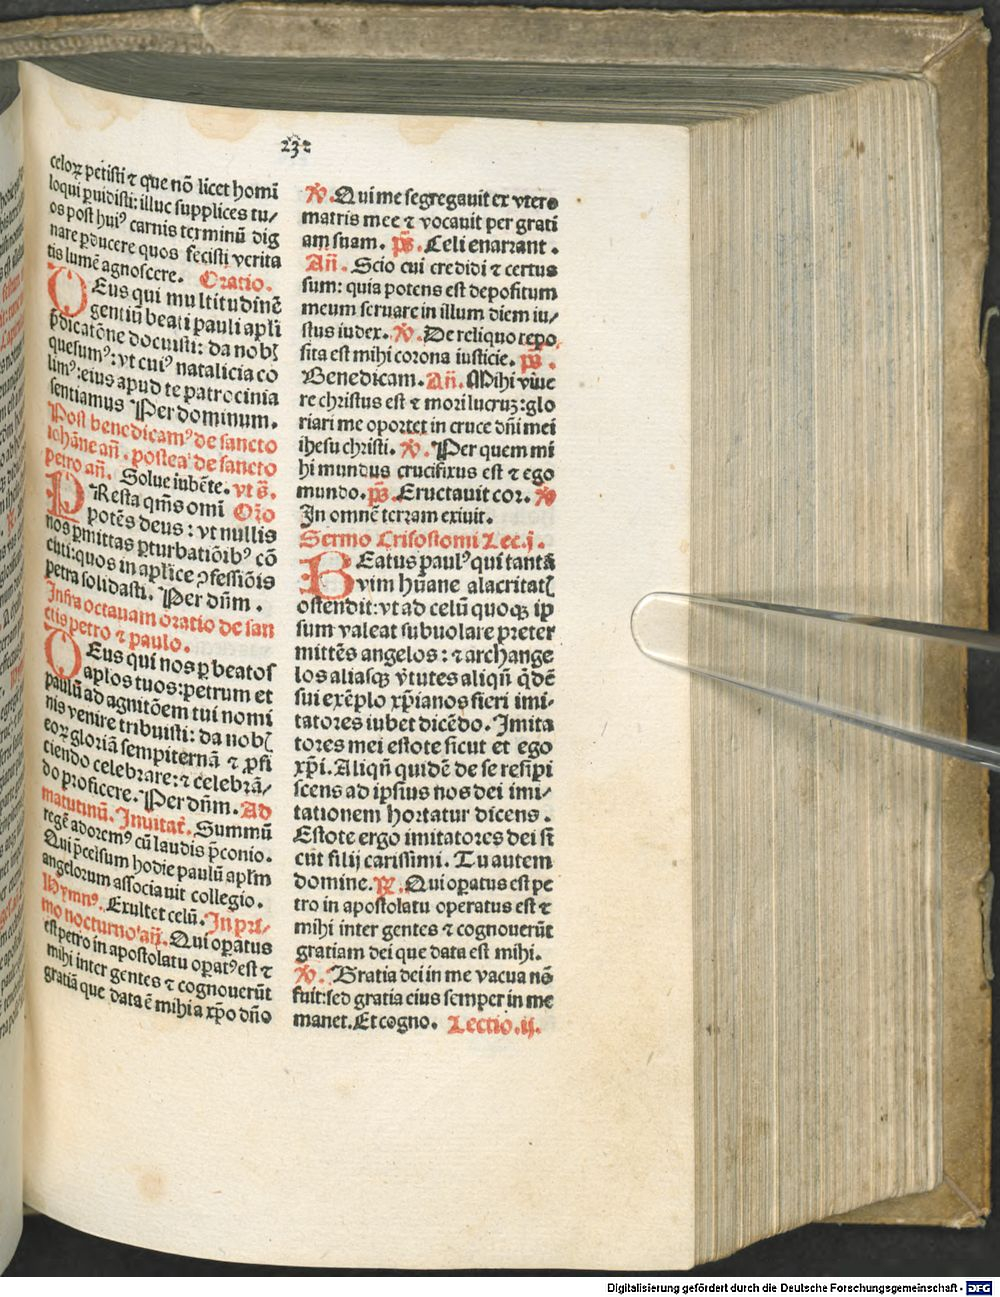 232
celoꝝ petisti ⁊ que nō licet homī
loqui ꝑuidisti: illuc supplices tu/
os post huiꝰ carnis terminū dig
nare ꝑducere quos fecisti verita
tis lumē agnoscere. Oratio.
DEus qui multitudinē
gentiū beati pauli apl̄i
p̄dicatōne docuisti: da nobꝭ
quesumꝰ: vt cuiꝰ natalicia co
limꝰ: eius apud te patrocinia
sentiamus Per dominum.
Post benedicamꝰ de sancto
iohāne añ. postea de sancto
petro añ. Solue iubēte. vt s̄.
PResta qm̄s omī Oro
potēs deus: vt nullis
nos ꝑmittas ꝑturbatiōibꝰ cō
cuti: quos in aplice ꝯfessiōis
petra solidasti. Per dn̄m.
Infra octauam oratio de san
ctis petro ⁊ paulo.
DEus qui nos ꝑ beatos
aplos tuos: petrum et
paulū ad agnitōem tui nomi
nis venire tribuisti: da nobꝭ
eoꝝ gloriā sempiternā ⁊ ꝓfi
ciendo celebrare: ⁊ celebrā/
do proficere. Per dn̄m. Ad
matutinū. Inuitat̄. Summū
regē adoremꝰ cū laudis p̄conio.
Qui p̄celsum hodie paulū apl̄m
angelorum associauit collegio.
Hymnꝰ. Exultet celū. In pri/
mo nocturno añ. Qui oꝑatus
est petro in apostolatu oꝑatꝰ est ⁊
mihi inter gentes ⁊ cognouerūt
gratiā que data ē mihi a xp̄o dn̄o
℣. Qui me segregauit ex vtero
matris mee ⁊ vocauit per grati
am suam. p̄s. Celi enarrant.
Añ. Scio cui credidi ⁊ certus
sum: quia potens est depositum
meum seruare in illum diem iu/
stus iudex. ℣. De reliquo repo
sita est mihi corona iusticie. p̄s.
Benedicam. Añ. Mihi viue
re christus est ⁊ mori lucruꝫ: glo
riari me oportet in cruce dn̄i mei
ihesu christi. ℣. Per quem mi
hi mundus crucifixus est ⁊ ego
mundo. p̄s. Eructauit cor. ℣
In omnē terram exiuit.
Sermo Crisostomi Lec.j.
BEatus paulꝰ qui tantā
vim hūane alacritatꝭ
ostendit: vt ad celū quoqꝫ ip
sum valeat subuolare preter
mittēs angelos: ⁊ archange
los aliasqꝫ v̓tutes aliqñ q̄dē
sui exēplo xp̄ianos fieri imi/
tatores iubet dicēdo. Imita
tores mei estote sicut et ego
xp̄i. Aliqñ quidē de se resipi
scens ad ipsius nos dei imi/
tationem hortatur dicens.
Estote ergo imitatores dei si
cut filij carissimi. Tu autem
domine. ℞. Qui oꝑatus est pe
tro in apostolatu operatus est ⁊
mihi inter gentes ⁊ cognouerūt
gratiam dei que data est mihi.
℣. Gratia dei in me vacua nō
fuit: sed gratia eius semper in me
manet. Et cogno. Lectio.ij.
Digitalisierung gefördert durch die Deutsche Forschungsgemeinschaft - DFG